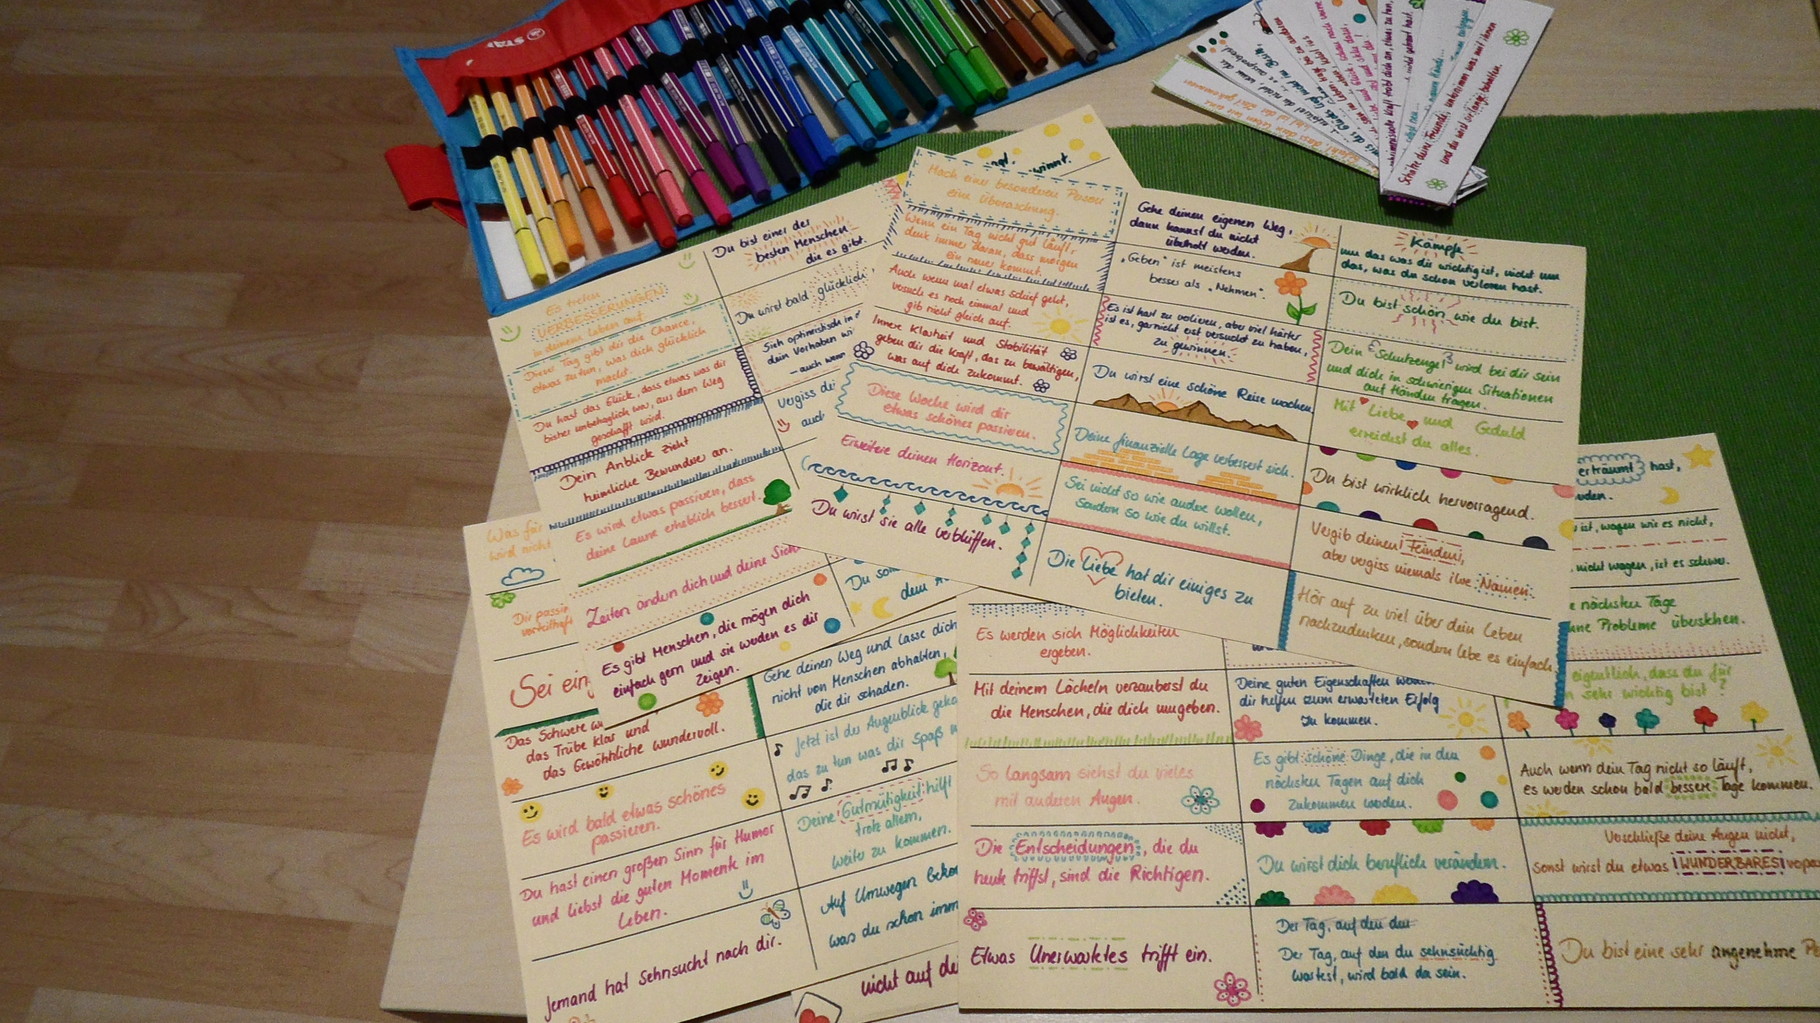 STA
Schätze deine Freunde, unternimm was mit ihnen
und du wirst sie lange behalten.
Es treten
VERBESSERUNGEN
in deinem Leben auf.
Dieser Tag gibt dir die Chance,
etwas zu tun, was dich glücklich
macht.
Du hast das Glück, dass etwas was dir
bisher unbehaglich war, aus dem Weg
geschafft wird.
Dein Anblick zieht
heimliche Bewunderer an.
Es wird etwas passieren, dass
deine Laune erheblich bessert.
Zeiten ändern dich und deine Sich
Es gibt Menschen, die mögen dich
einfach gern und sie werden es dir
zeigen.
Du bist einer der
besten Menschen
die es gibt.
Du wirst bald glücklich
Sich optimistisch in
dein Vorhaben wi
– auch wenn
Vergiss de
auch
winnt.
Mach einer besonderen Person
eine Überraschung.
Wenn ein Tag nicht gut läuft,
denk immer daran, dass morgen
ein neuer kommt.
Auch wenn mal etwas schief geht,
versuch es noch einmal und
gib nicht gleich auf.
Innere Klarheit und Stabilität
geben dir die Kraft, das zu bewältigen,
was auf dich zukommt.
Diese Woche wird dir
etwas schönes passieren.
Erweitere deinen Horizont.
Du wirst sie alle verblüffen.
Gehe deinen eigenen Weg,
dann kannst du nicht
überholt werden.
„Geben" ist meistens
besser als „Nehmen".
Es ist hart zu verlieren, aber viel härter
ist es, garnicht erst versucht zu haben,
zu gewinnen.
Du wirst eine schöne Reise machen.
Deine finanzielle Lage verbessert sich.
Sei nicht so wie andere wollen,
sondern so wie du willst.
Die Liebe hat dir einiges zu
bieten.
Kämpfe
um das was dir wichtig ist, nicht um
das, was du schon verloren hast.
Du bist schön wie du bist.
Dein Schutzengel wird bei dir sein
und dich in schwierigen Situationen
auf Händen tragen.
Mit Liebe und Geduld
erreichst du alles.
Du bist wirklich hervorragend.
Vergib deinen Feinden,
aber vergiss niemals ihre Namen.
Hör auf zu viel über dein Leben
nachzudenken, sondern lebe es einfach.
Was für
wird nicht
Dir passie
vorteilhaft
Sei ein
Das Schwere w
das Trübe klar und
das Gewöhnliche wundervoll.
Es wird bald etwas schönes
passieren.
Du hast einen großen Sinn für Humor
und liebst die guten Momente im
Leben.
Jemand hat Sehnsucht nach dir.
Du so
dem
Gehe deinen Weg und lasse dich
nicht von Menschen abhalten,
die dir schaden.
Jetzt ist der Augenblick geko
das zu tun was dir Spaß m
Deine Gutmütigkeit hilft
trotz allem,
weiter zu kommen.
Auf Umwegen beko
was du schon imm
nicht auf de
Es werden sich Möglichkeiten
ergeben.
Mit deinem Lächeln verzauberst du
die Menschen, die dich umgeben.
So langsam siehst du vieles
mit anderen Augen.
Die Entscheidungen, die du
heute triffst, sind die Richtigen.
Etwas Unerwartetes trifft ein.
Deine guten Eigenschaften werden
dir helfen zum erwarteten Erfolg
zu kommen.
Es gibt schöne Dinge, die in den
nächsten Tagen auf dich
zukommen werden.
Du wirst dich beruflich verändern.
Der Tag, auf den du
Der Tag, auf den du sehnsüchtig
wartest, wird bald da sein.
erträumt hast,
rden.
ist, wagen wir es nicht,
nicht wagen, ist es schwer.
e nächsten Tage
hne Probleme überstehen.
eigentlich, dass du für
n sehr wichtig bist?
Auch wenn dein Tag nicht so läuft,
es werden schon bald bessere Tage kommen.
Verschließe deine Augen nicht,
sonst wirst du etwas !WUNDERBARES! verpa
Du bist eine sehr angenehme Pe